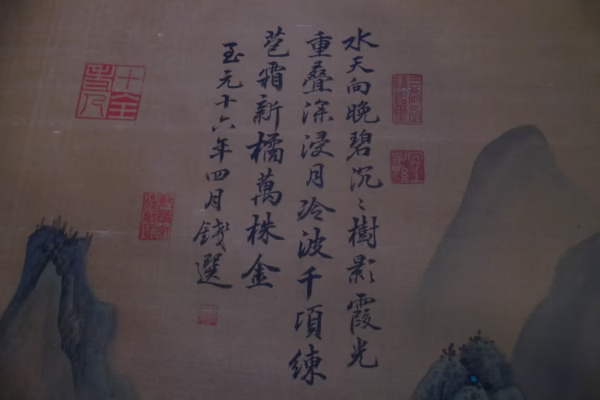 水天向晚碧沉沉樹影霞光
重叠深浸月冷波千頃練
苞霜新橘萬株金
至元十六年四月錢選
十全老人